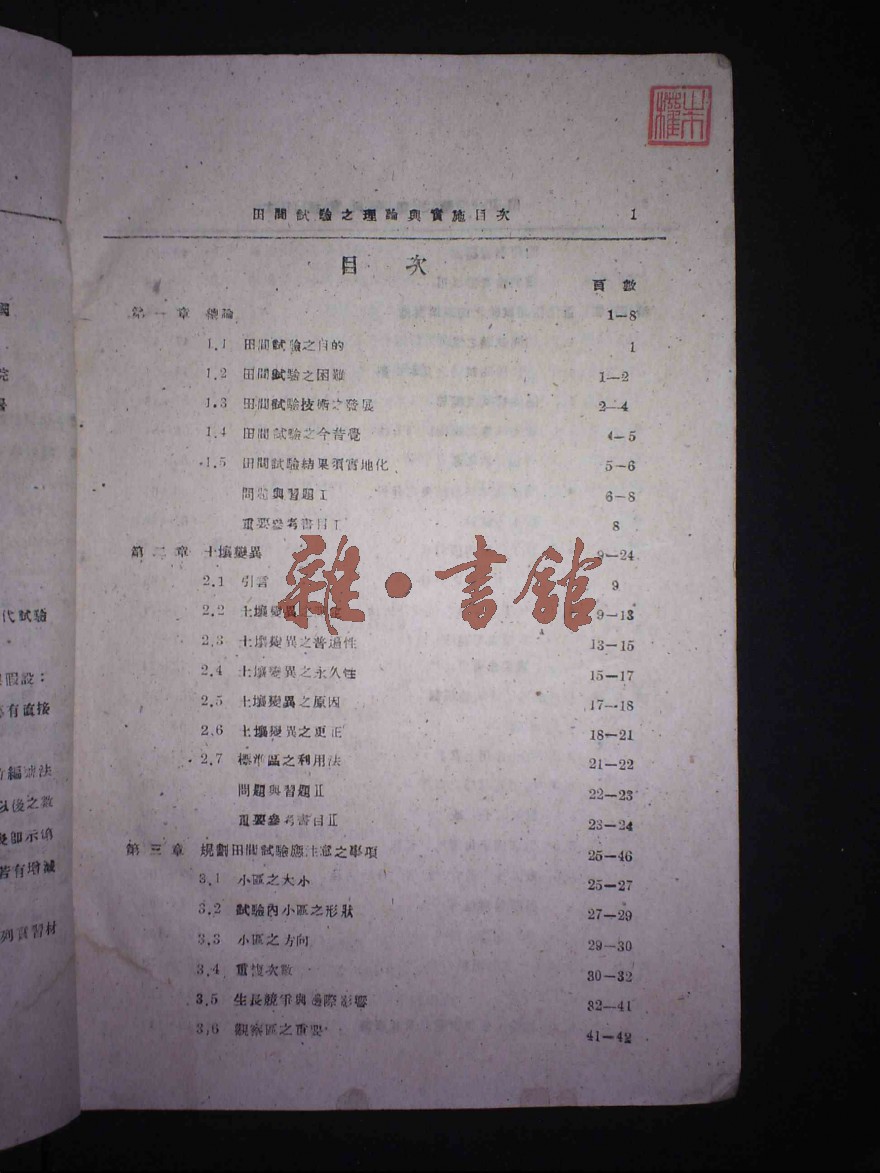 田間試驗之理論與實施目次 1
目 次
頁 數
第 一 章 總論 1—8
1.1 田間試驗之目的 1
1.2 田間試驗之困難 1—2
1.3 田間試驗技術之發展 2—4
1.4 田間試驗之今昔觀 4—5
1.5 田間試驗結果須實地化 5—6
問題與習題 I 6—8
重要參考書目 I 8
第 二 章 土壤變異 9—24
2.1 引言 9
2.2 土壤變異之 9—13
2.3 土壤變異之普遍性 13—15
2.4 土壤變異之永久性 15—17
2.5 土壤變異之原因 17—18
2.6 土壤變異之更正 18—21
2.7 標準區之利用法 21—22
問題與習題 II 22—23
重要參考書目 II 23—24
第 三 章 規劃田間試驗應注意之事項 25—46
3.1 小區之大小 25—27
3.2 試驗內小區之形狀 27—29
3.3 小區之方向 29—30
3.4 重複次數 30—32
3.5 生長競爭與邊際影響 32—41
3.6 觀察區之重要 41—42
雜·書館
代試驗
假設：
有直接
編號法
以後之數
若有增減
列實習材